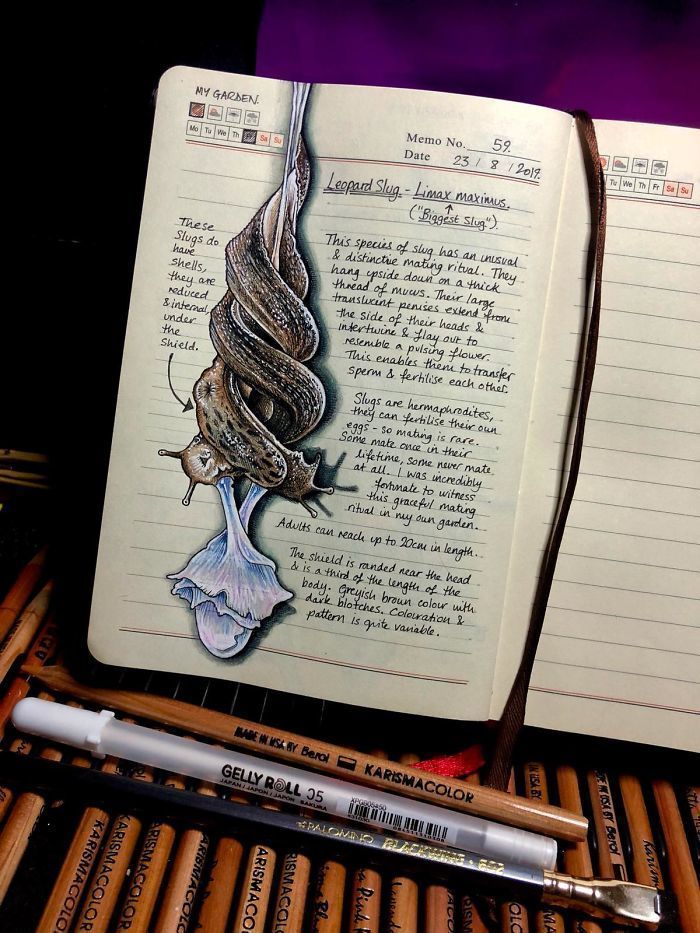 MY GARDEN.
Mo Tu We Th Sa Su
Memo No. 59.
Date 23 / 8 / 2019.
Leopard Slug - Limax maximus.
("Biggest Slug")
These
Slugs do
have
shells,
they are
reduced
& internal,
under
the
shield.
This species of slug has an unusual
& distinctive mating ritual. They
hang upside down on a thick
thread of mucus. Their large
translucent penises extend from
the side of their heads &
intertwine & flay out to
resemble a pulsing flower.
This enables them to transfer
sperm & fertilise each other.
Slugs are hermaphrodites,
they can fertilise their own
eggs - so mating is rare.
Some mate once in their
lifetime, some never mate
at all. I was incredibly
fortunate to witness
this graceful mating
ritual in my own garden.
Adults can reach up to 20cm in length.
The shield is rounded near the head
& is a third of the length of the
body. Greyish brown colour with
dark blotches. Colouration &
pattern is quite variable.
Tu We Th Fr Sa Su
MADE IN USA BY Berol KARISMACOLOR
GELLY ROLL 05
JAPAN / JAPON / JAPON SAKURA
XPGB05#50
PALOMINO BLACKWING 602
KARISMACOLOR
KARISMACOLOR
KARISMACOLOR
KARISMACOLOR